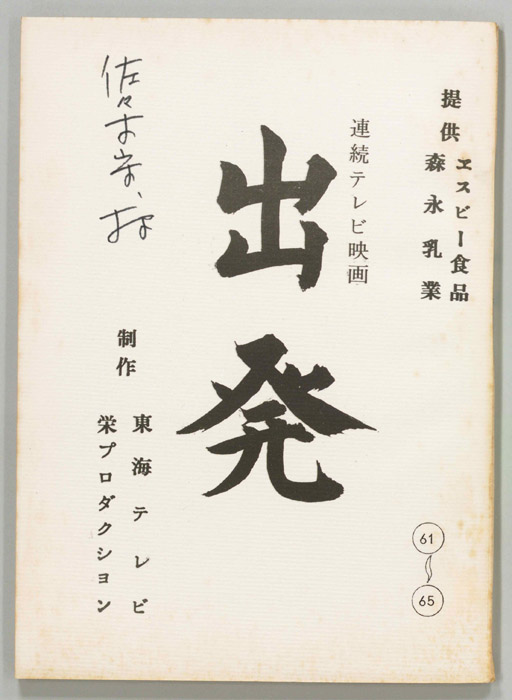 提供 エスビー食品
森永乳業
連続テレビ映画
出発
佐々木守様
制作 東海テレビ
栄プロダクション
61
65